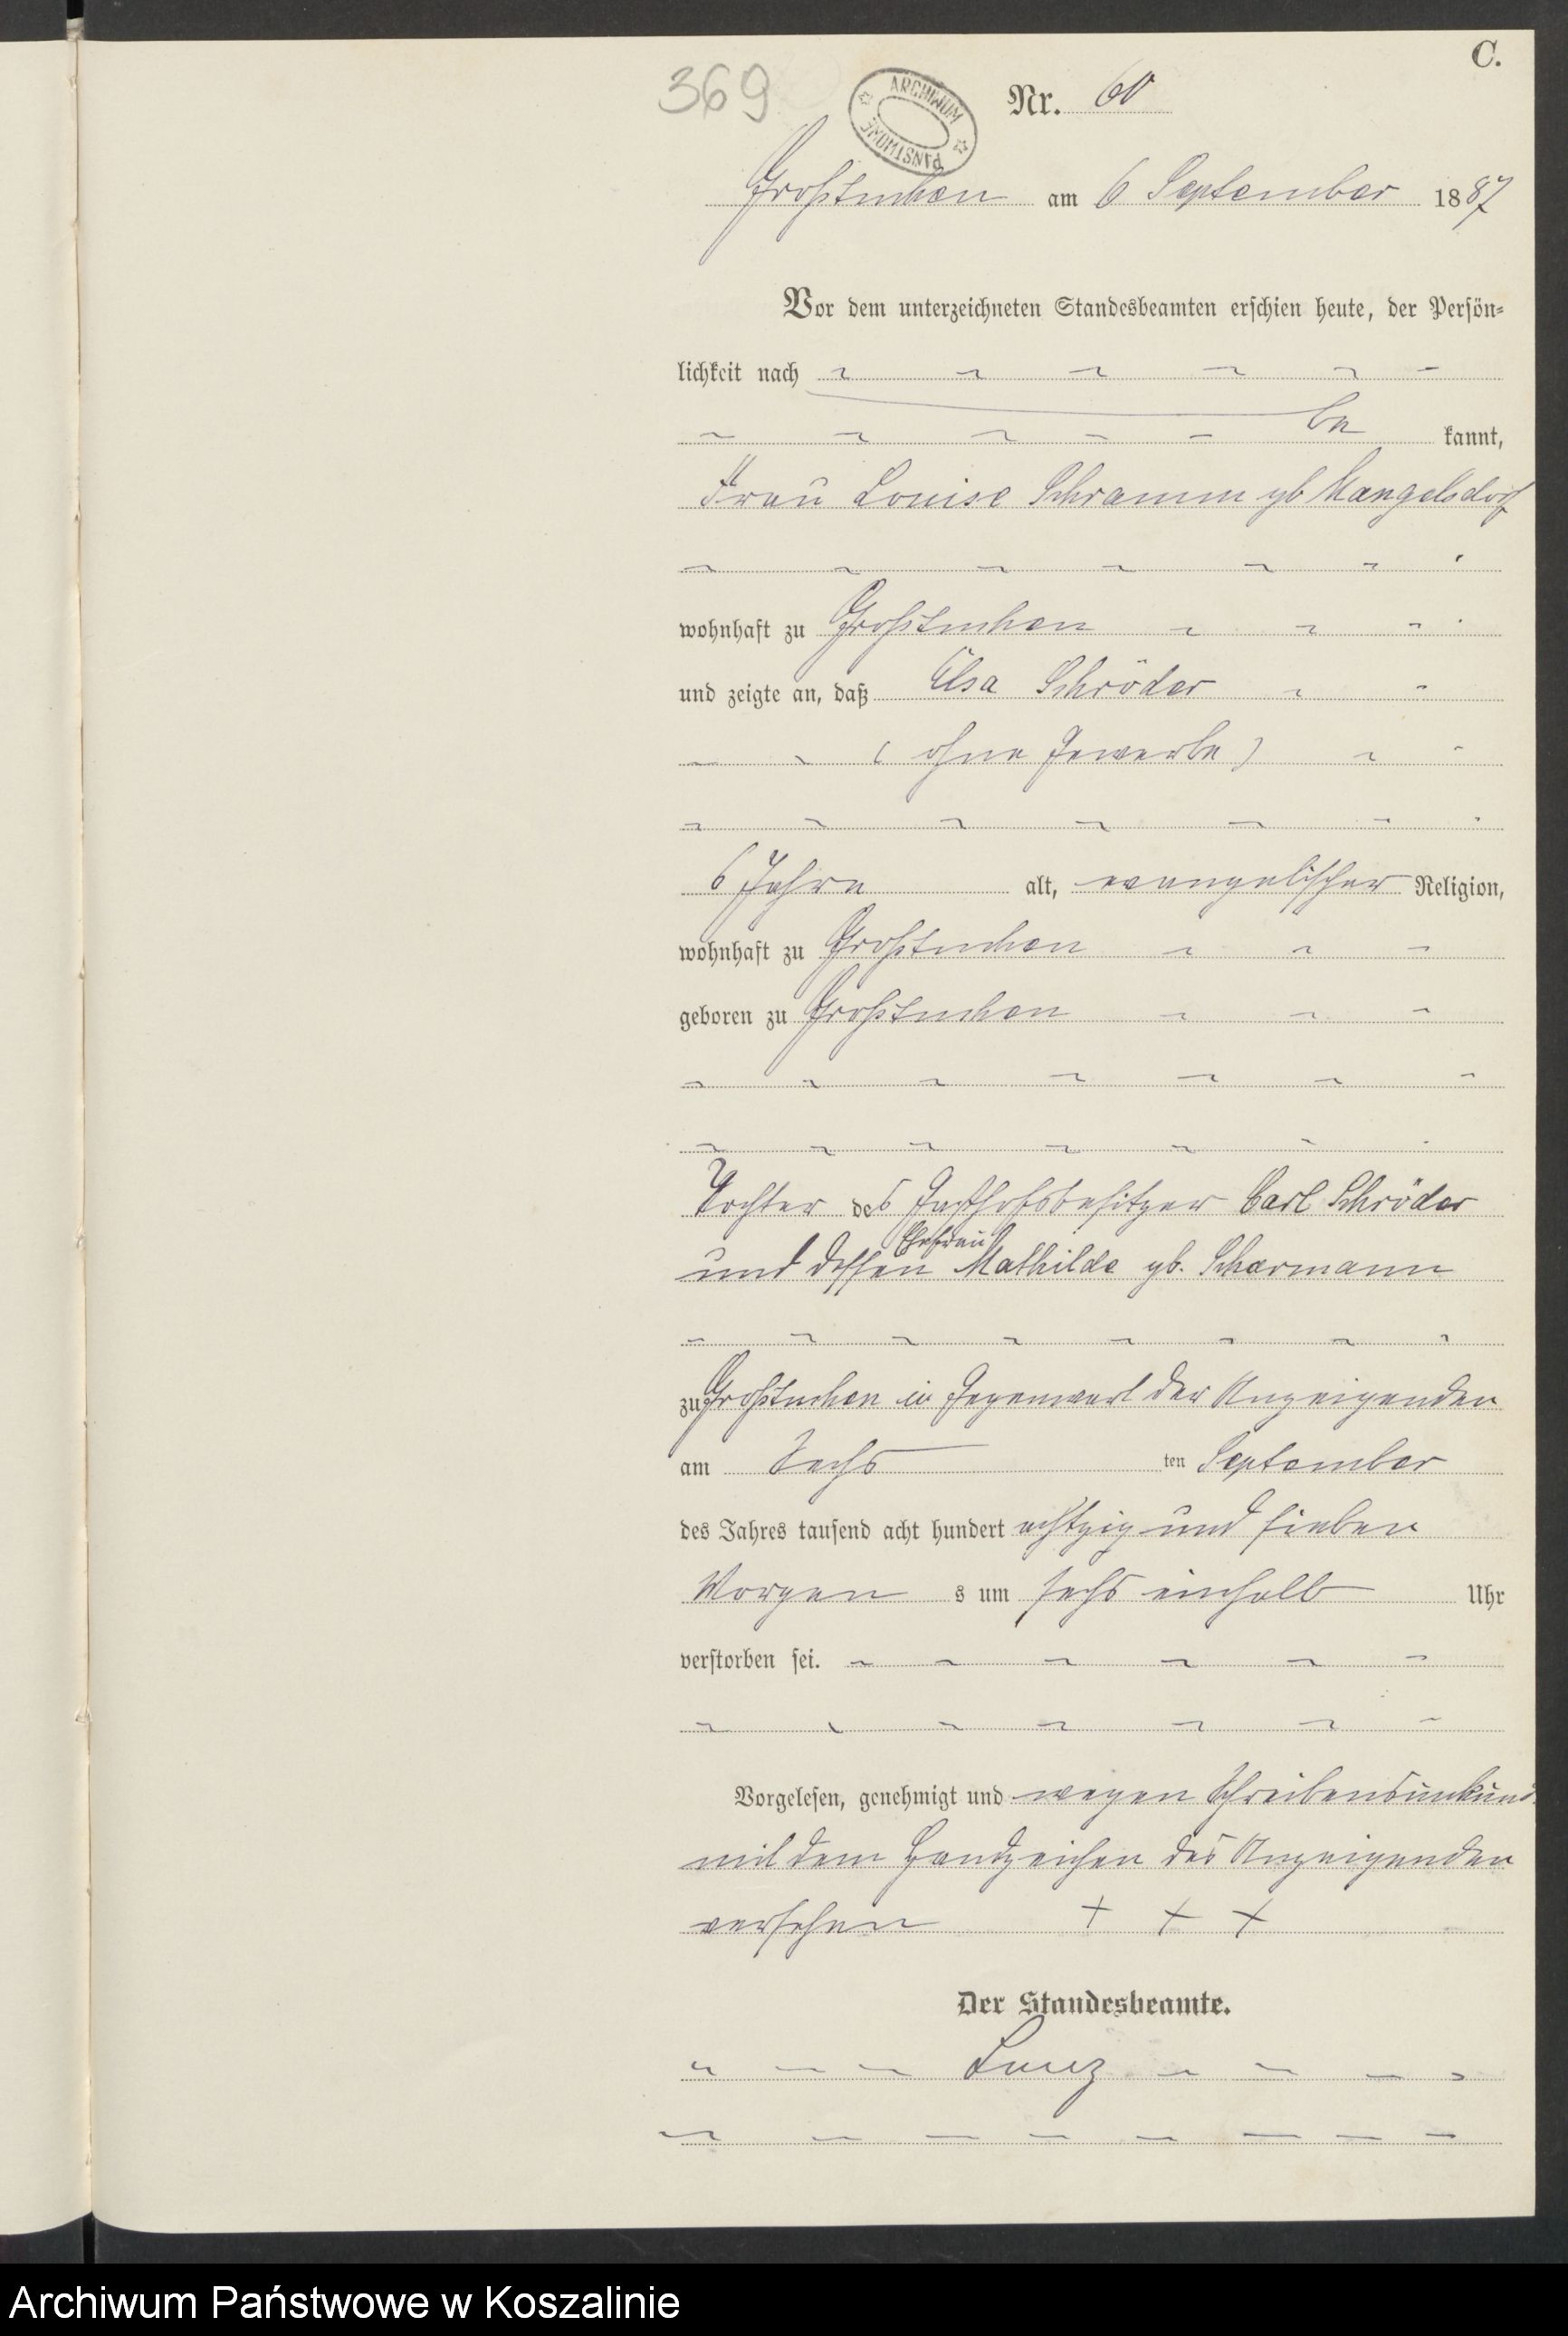 C.
369
ARCHIWUM PAŃSTWOWE
Nr. 60
Großtuchen am 6 September 1887
Vor dem unterzeichneten Standesbeamten erschien heute, der Persön-
lichkeit nach
be kannt,
Frau Louise Schramm gb Mangelsdorf
wohnhaft zu Großtuchen
und zeigte an, daß Elsa Schröder
( ohne Gewerbe )
6 Jahre alt, evangelischer Religion,
wohnhaft zu Großtuchen
geboren zu Großtuchen
Tochter des Gasthofsbesitzer Carl Schröder
Ehefrau
und dessen Mathilde gb. Scharmann
zu Großtuchen in Gegenwart der Anzeigenden
am Sechs ten September
des Jahres tausend acht hundert achtzig und sieben
Morgen s um sechs einhalb Uhr
verstorben sei.
Vorgelesen, genehmigt und wegen Schreibensunkund
mit dem Handzeichen des Anzeigenden
versehen + + +
Der Standesbeamte.
Archiwum Państwowe w Koszalinie